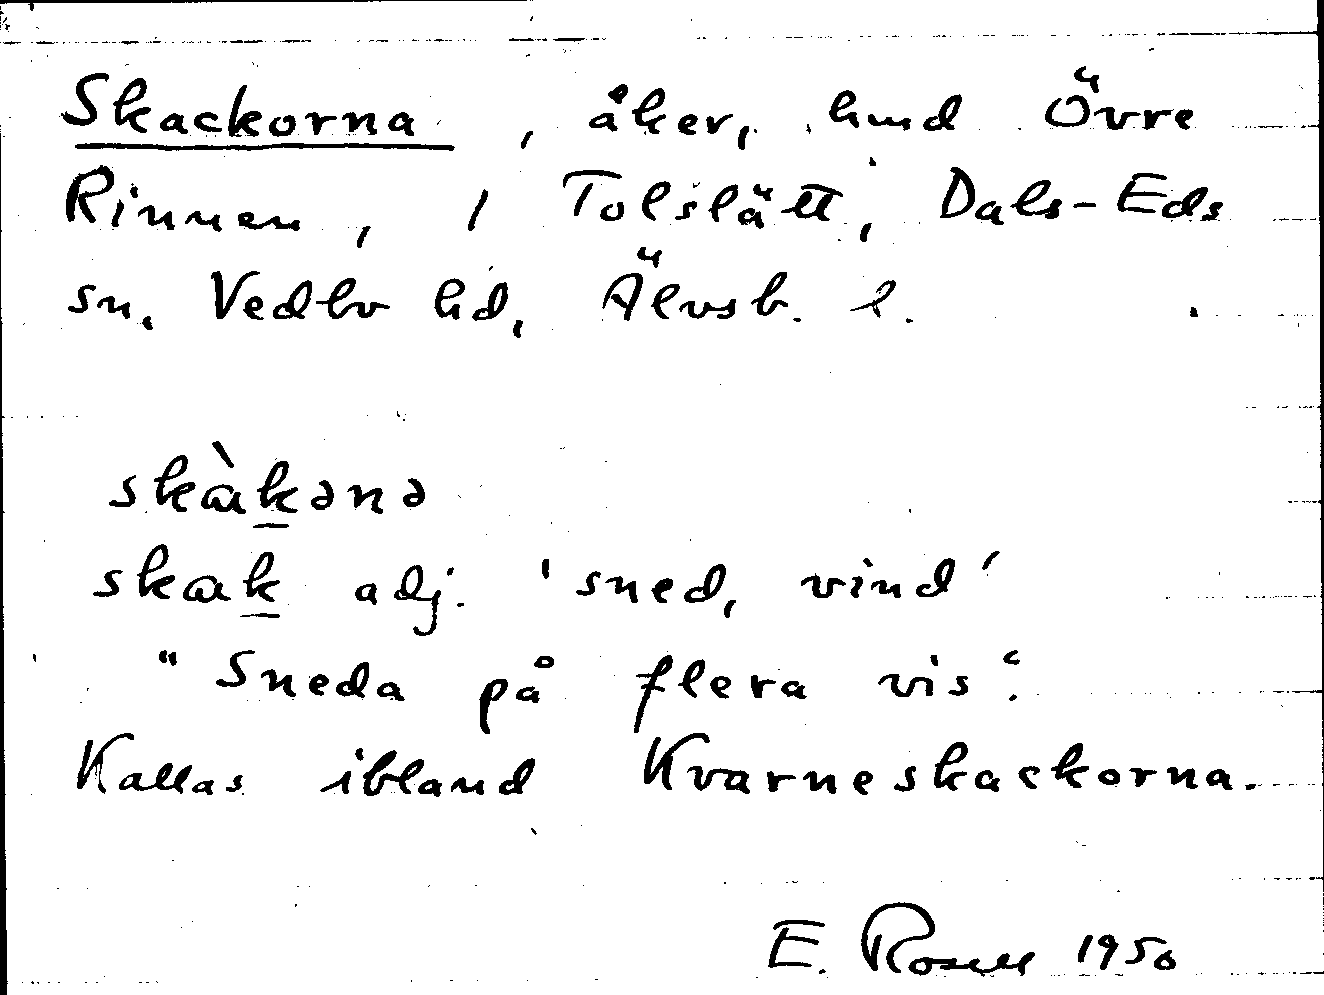 Skackorna, åker, hmd Övre
Rinnen, 1 Tolslätt, Dals-Eds
sn. Vedbo hd, Älvsb. l.
skàkənə
skak adj. 'sned, vind'
"Sneda på flera vis".
Kallas ibland Kvarneskackorna.
E. Rosell 1950